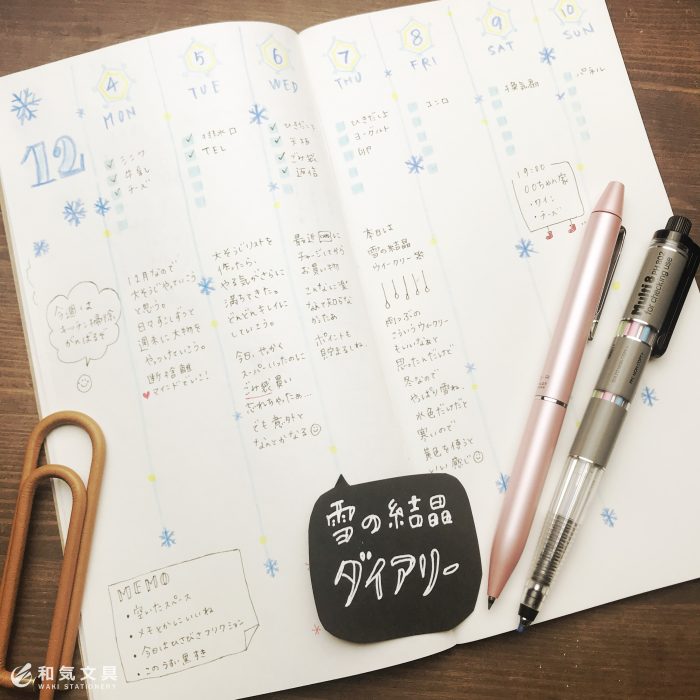 12
4
MON
シンク
牛乳
チーズ
5
TUE
排水口
TEL
6
WED
ひきだし下
ごみ袋
返信
7
THU
ひきだし上
ヨーグルト
卵
8
FRI
コンロ
9
SAT
換気扇
19:00
〇〇ちゃん家
・ワイン
・チーズ
10
SUN
パネル
今週は
キッチン掃除
がんばるぞ
12月なので
大そうじやっていこう
と思う。
日々少しずつと
週末に大物を
やっつけていこう。
断捨離
マインドでいこう!
大そうじリストを
作ったら、
やる気がさらに
満ちてきた。
どんどんキレイに
していこう。
今日、せっかく
スーパーいったのに
ごみ袋買い
忘れちゃった…
でも意外と
なんとかなる
最近
チャージしてから
お買い物
こんなに楽
なんて知らな
かったあ
ポイントも
貯まるしね
本日は
雪の結晶
ウィークリー
こういうウィークリー
もいいなぁと
思ったんだけど
冬なので
やっぱり雪ね
水色だけだと
寒いので
黄色を使うと
いい感じ
MEMO
・空いたスペース
・メモとかしこいいね
・今日はひさびさフリクション
・このうすい黒すき
雪の結晶
ダイアリー
Multi 8
for checking use
和気文具
WAKI STATIONERY